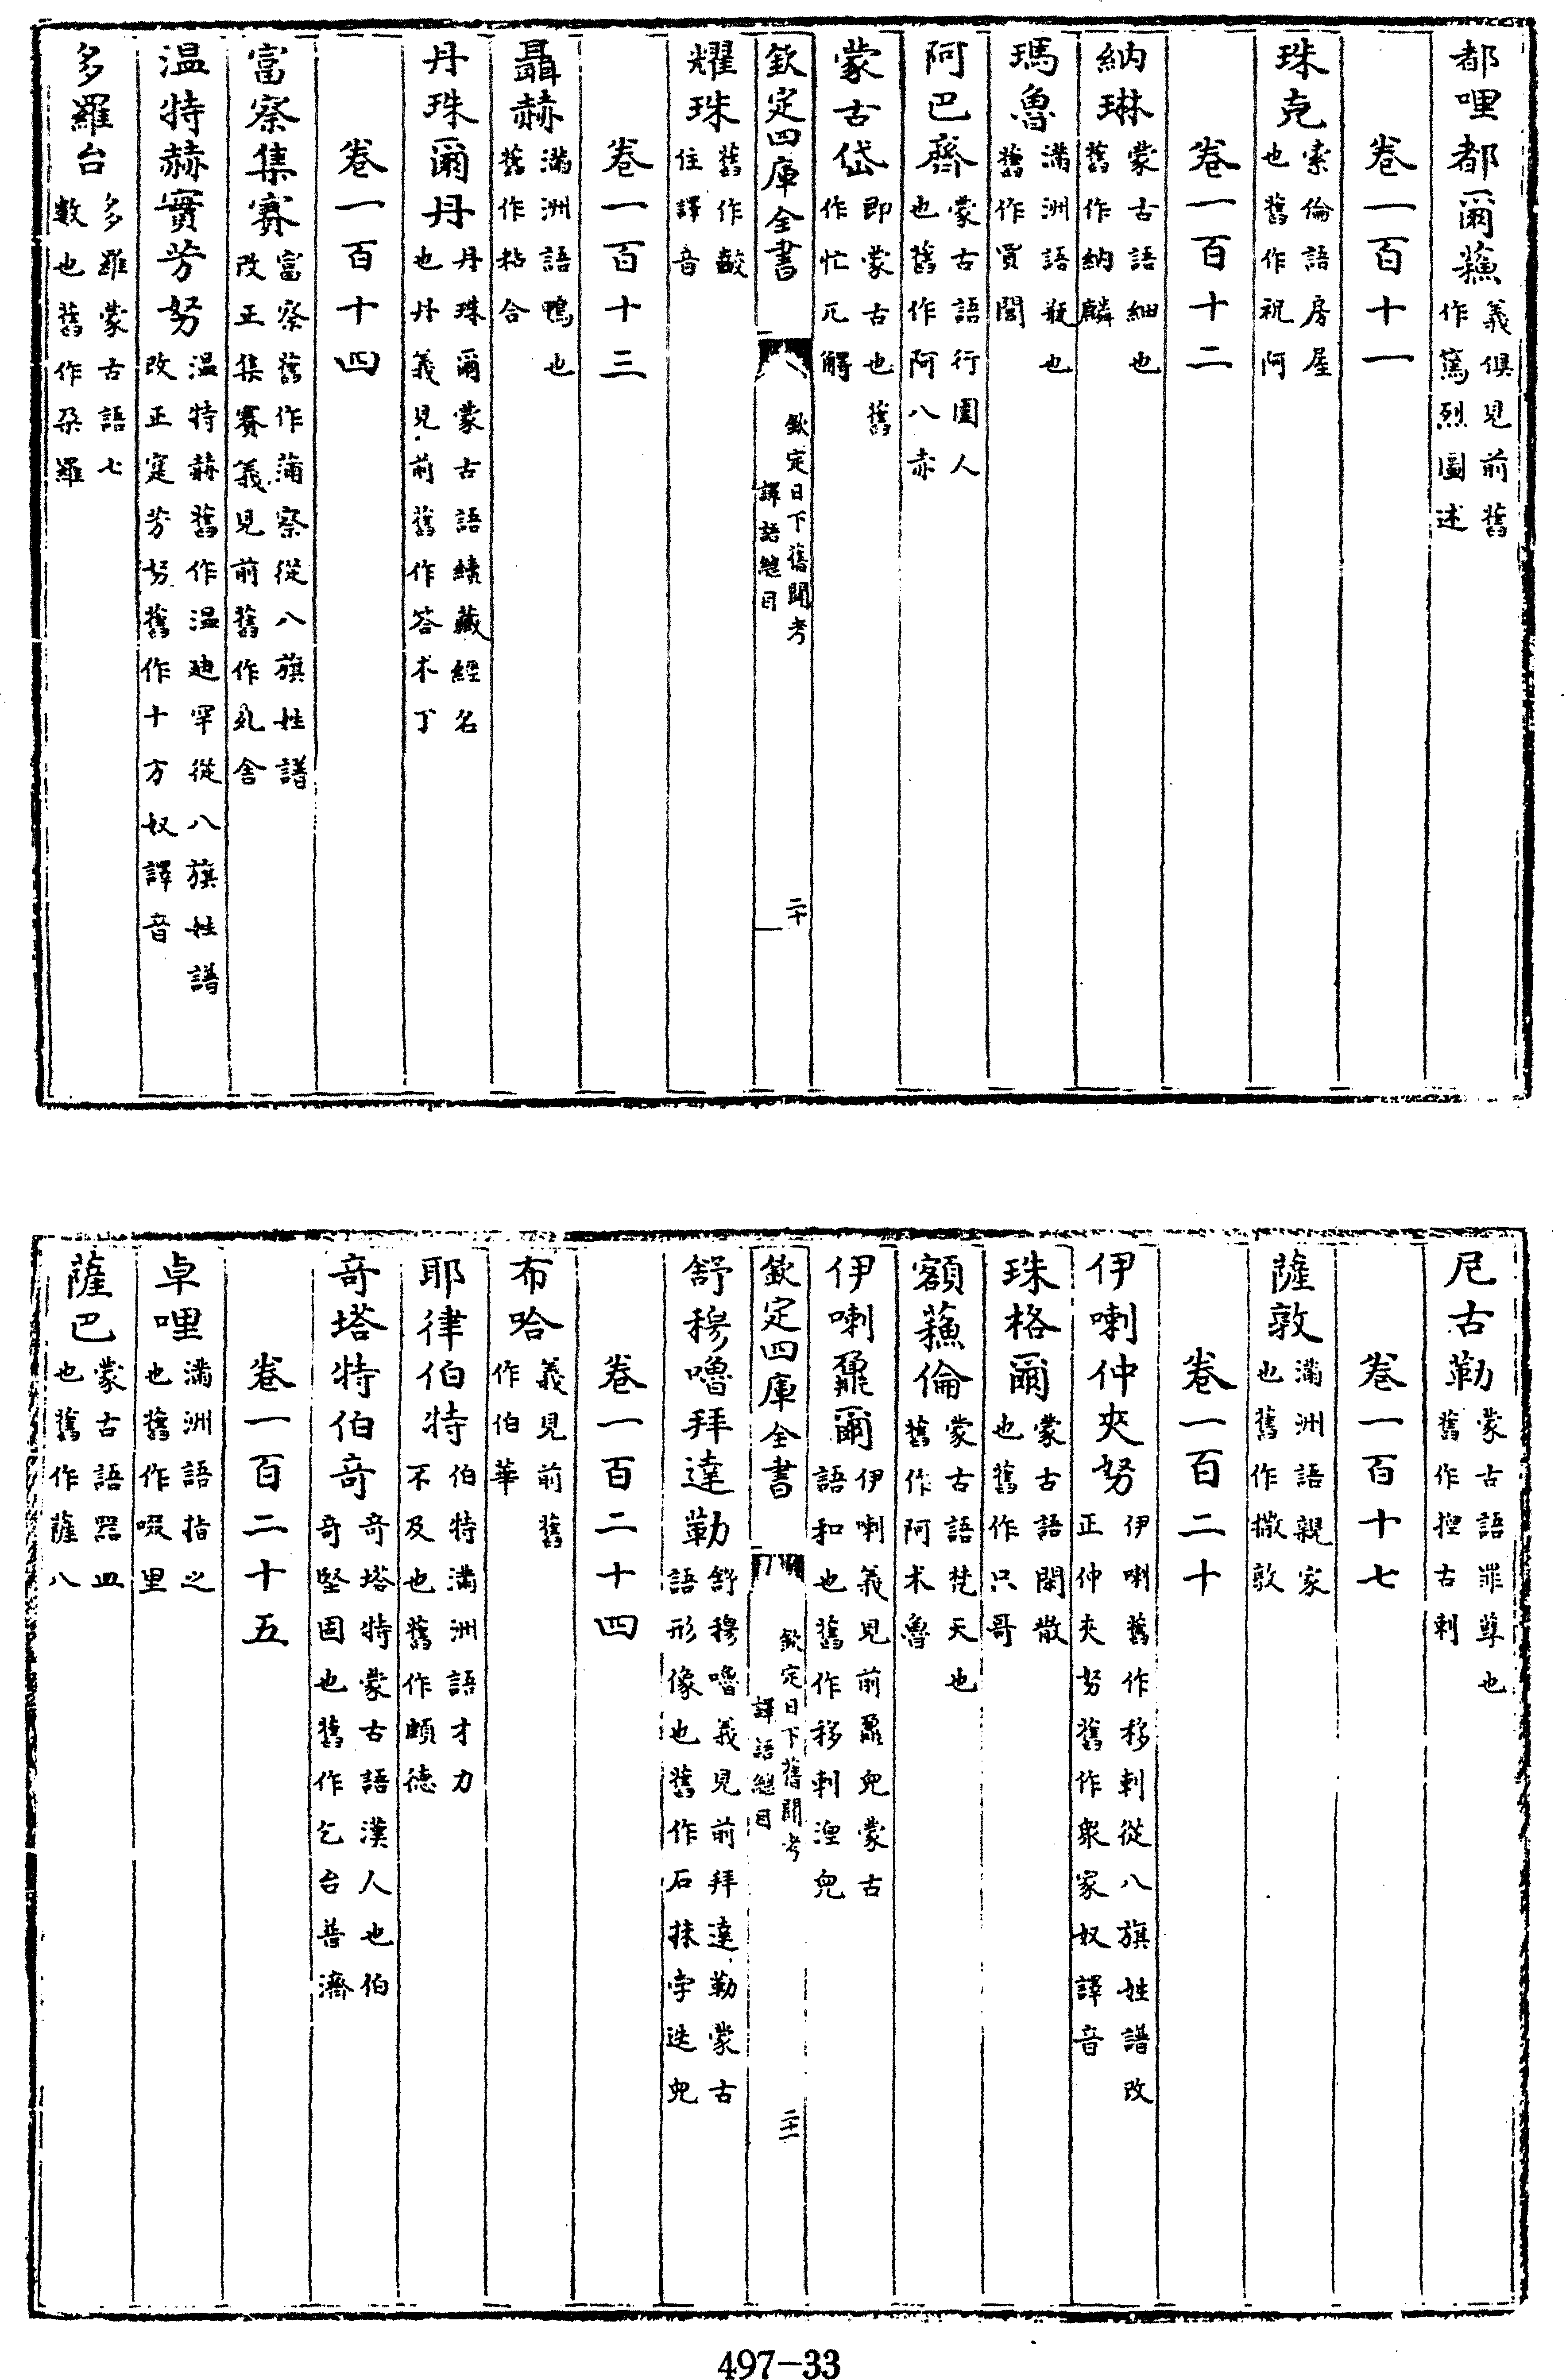 都哩都爾蘓義俱見前舊作篤烈圖述
卷一百十一
珠克索倫語房屋也舊作祝阿
卷一百十二
納琳蒙古語細也舊作納麟
瑪魯滿洲語瓶也舊作買閭
阿巴齊蒙古語行圍人也舊作阿八赤
蒙古岱即蒙古也舊作忙兀䚟
欽定四庫全書
欽定日下舊聞考譯語總目
二十
耀珠舊作
住譯音
卷一百十三
聶赫滿洲語鴨也舊作粘合
丹珠爾丹丹珠爾蒙古語續藏經名也丹義見前舊作答朮丁
卷一百十四
富察集賽富察舊作蒲察從八旗姓譜改正集賽義見前舊作乣舍
温特赫實芳努温特赫舊作温迪罕從八旗姓譜改正寔芳努舊作十方奴譯音
多羅台多羅蒙古語七數也舊作朶羅
尼古勒蒙古語罪孽也舊作揑古剌
卷一百十七
薩敦滿洲語親家也舊作撒敦
卷一百二十
伊喇仲夾努伊喇舊作移剌從八旗姓譜改正仲夾努舊作衆家奴譯音
珠格爾蒙古語閑散也舊作只哥
額蘓倫蒙古語梵天也舊作阿朮魯
伊喇鼐爾伊喇義見前鼐兒蒙古語和也舊作移剌湼兒
欽定四庫全書
欽定日下舊聞考譯語總目
二十一
舒穆嚕拜達勒舒穆嚕義見前拜達勒蒙古語形像也舊作石抹孛迭兒
卷一百二十四
布哈義見前舊作伯華
耶律伯特伯特滿洲語才力不及也舊作頗德
奇塔特伯奇奇塔特蒙古語漢人也伯奇堅固也舊作乞台普濟
卷一百二十五
卓哩滿洲語指之也舊作啜里
薩巴蒙古語器皿也舊作薩八
497-33